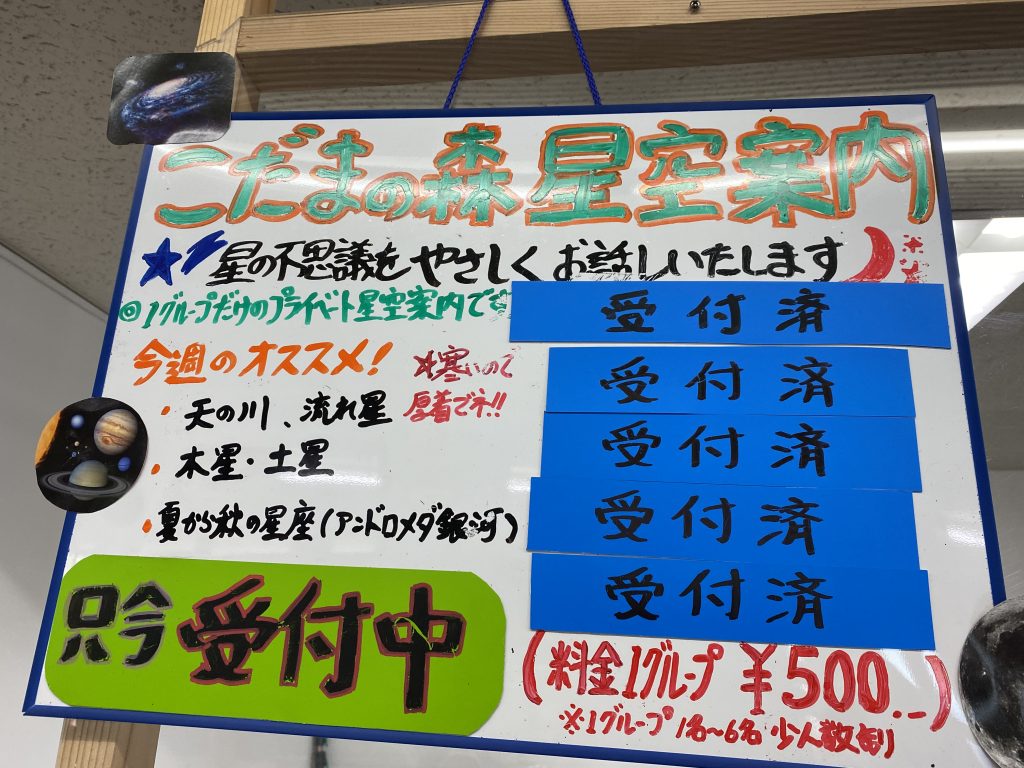 こだまの森 星空案内
星の不思議をやさしくお話しいたします
◎1グループだけのプライベート星空案内です
受付済
今週のオススメ!
※寒いので
厚着でネ!!
受付済
・天の川、流れ星
受付済
・木星・土星
受付済
・夏から秋の星座(アンドロメダ銀河)
受付済
只今 受付中
(料金1グループ ¥500.-)
※1グループ 1名~6名 少人数制